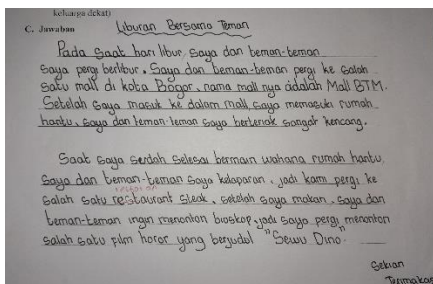 keluarga dekat)
C. Jawaban
Liburan Bersama Teman
Pada saat hari libur saya dan teman-teman
saya pergi berlibur. Saya dan teman-teman pergi ke salah
satu mall di kota Bogor, nama mall nya adalah Mall BTM.
Setelah saya masuk ke dalam mall, saya memasuki rumah
hantu, saya dan teman-teman saya berteriak sangat kencang.
Saat saya sudah selesai bermain wahana rumah hantu.
Saya dan teman-teman saya kelaparan, jadi kami pergi ke
salah satu restaurant steak, setelah saya makan, saya dan
teman-teman ingin menonton bioskop, jadi saya pergi menonton
salah satu film horor yang berjudul "Sewu Dino".
Sekian
Terimakasi